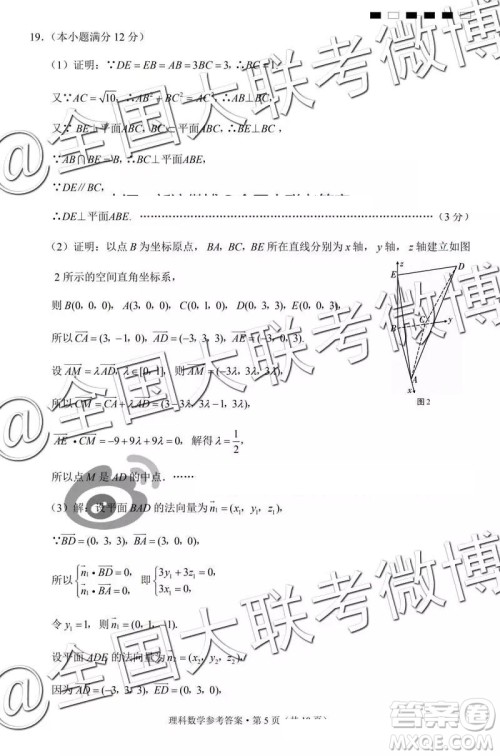 19.（本小题满分 12 分）
（1）证明：∵DE=EB=AB=3BC=3，∴BC=1.
又∵AC=√10，∴AB²+BC²=AC²，∴AB⊥BC，
又∵BE⊥平面ABC，BC⊂平面ABC，∴BE⊥BC，
∵AB∩BE=B，∴BC⊥平面ABE，
∵DE∥BC，
∴DE⊥平面ABE. ……………（3 分）
（2）证明：以点 B 为坐标原点， BA，BC，BE 所在直线分别为 x 轴，y 轴，z 轴建立如图
2 所示的空间直角坐标系，
则 B(0，0，0)，A(3，0，0)，C(0，1，0)，D(0，3，3)，E(0，0，3)，
所以 CA=(3，-1，0)，AD=(-3，3，3)，AE=(-3，0，3).
设 AM=λAD，λ∈[0，1]，则 AM=(-3λ，3λ，3λ)
所以 CM=CA+λAD=(3-3λ，3λ-1，3λ)
AE·CM=-9+9λ+9λ=0，解得 λ=1/2，
所以点 M 是 AD 的中点.……
（3）解：设平面 BAD 的法向量为 n₁=(x₁，y₁，z₁)
∵BD=(0，3，3)，BA=(3，0，0)，
所以 {n₁·BD=0，n₁·BA=0， 即 {3y₁+3z₁=0，3x₁=0，
令 y₁=1，则 n₁=(0，1，-1).
设平面 ADE 的法向量为 n₂=(x₂，y₂，z₂)，
因为 AD=(-3，3，3)，AE=(-3，0，3)
z
E
D
B
C
y
M
A
x
图 2
理科数学参考答案·第 5 页
@全国大联考微博
@全国大联考微博
@全国大联考微博